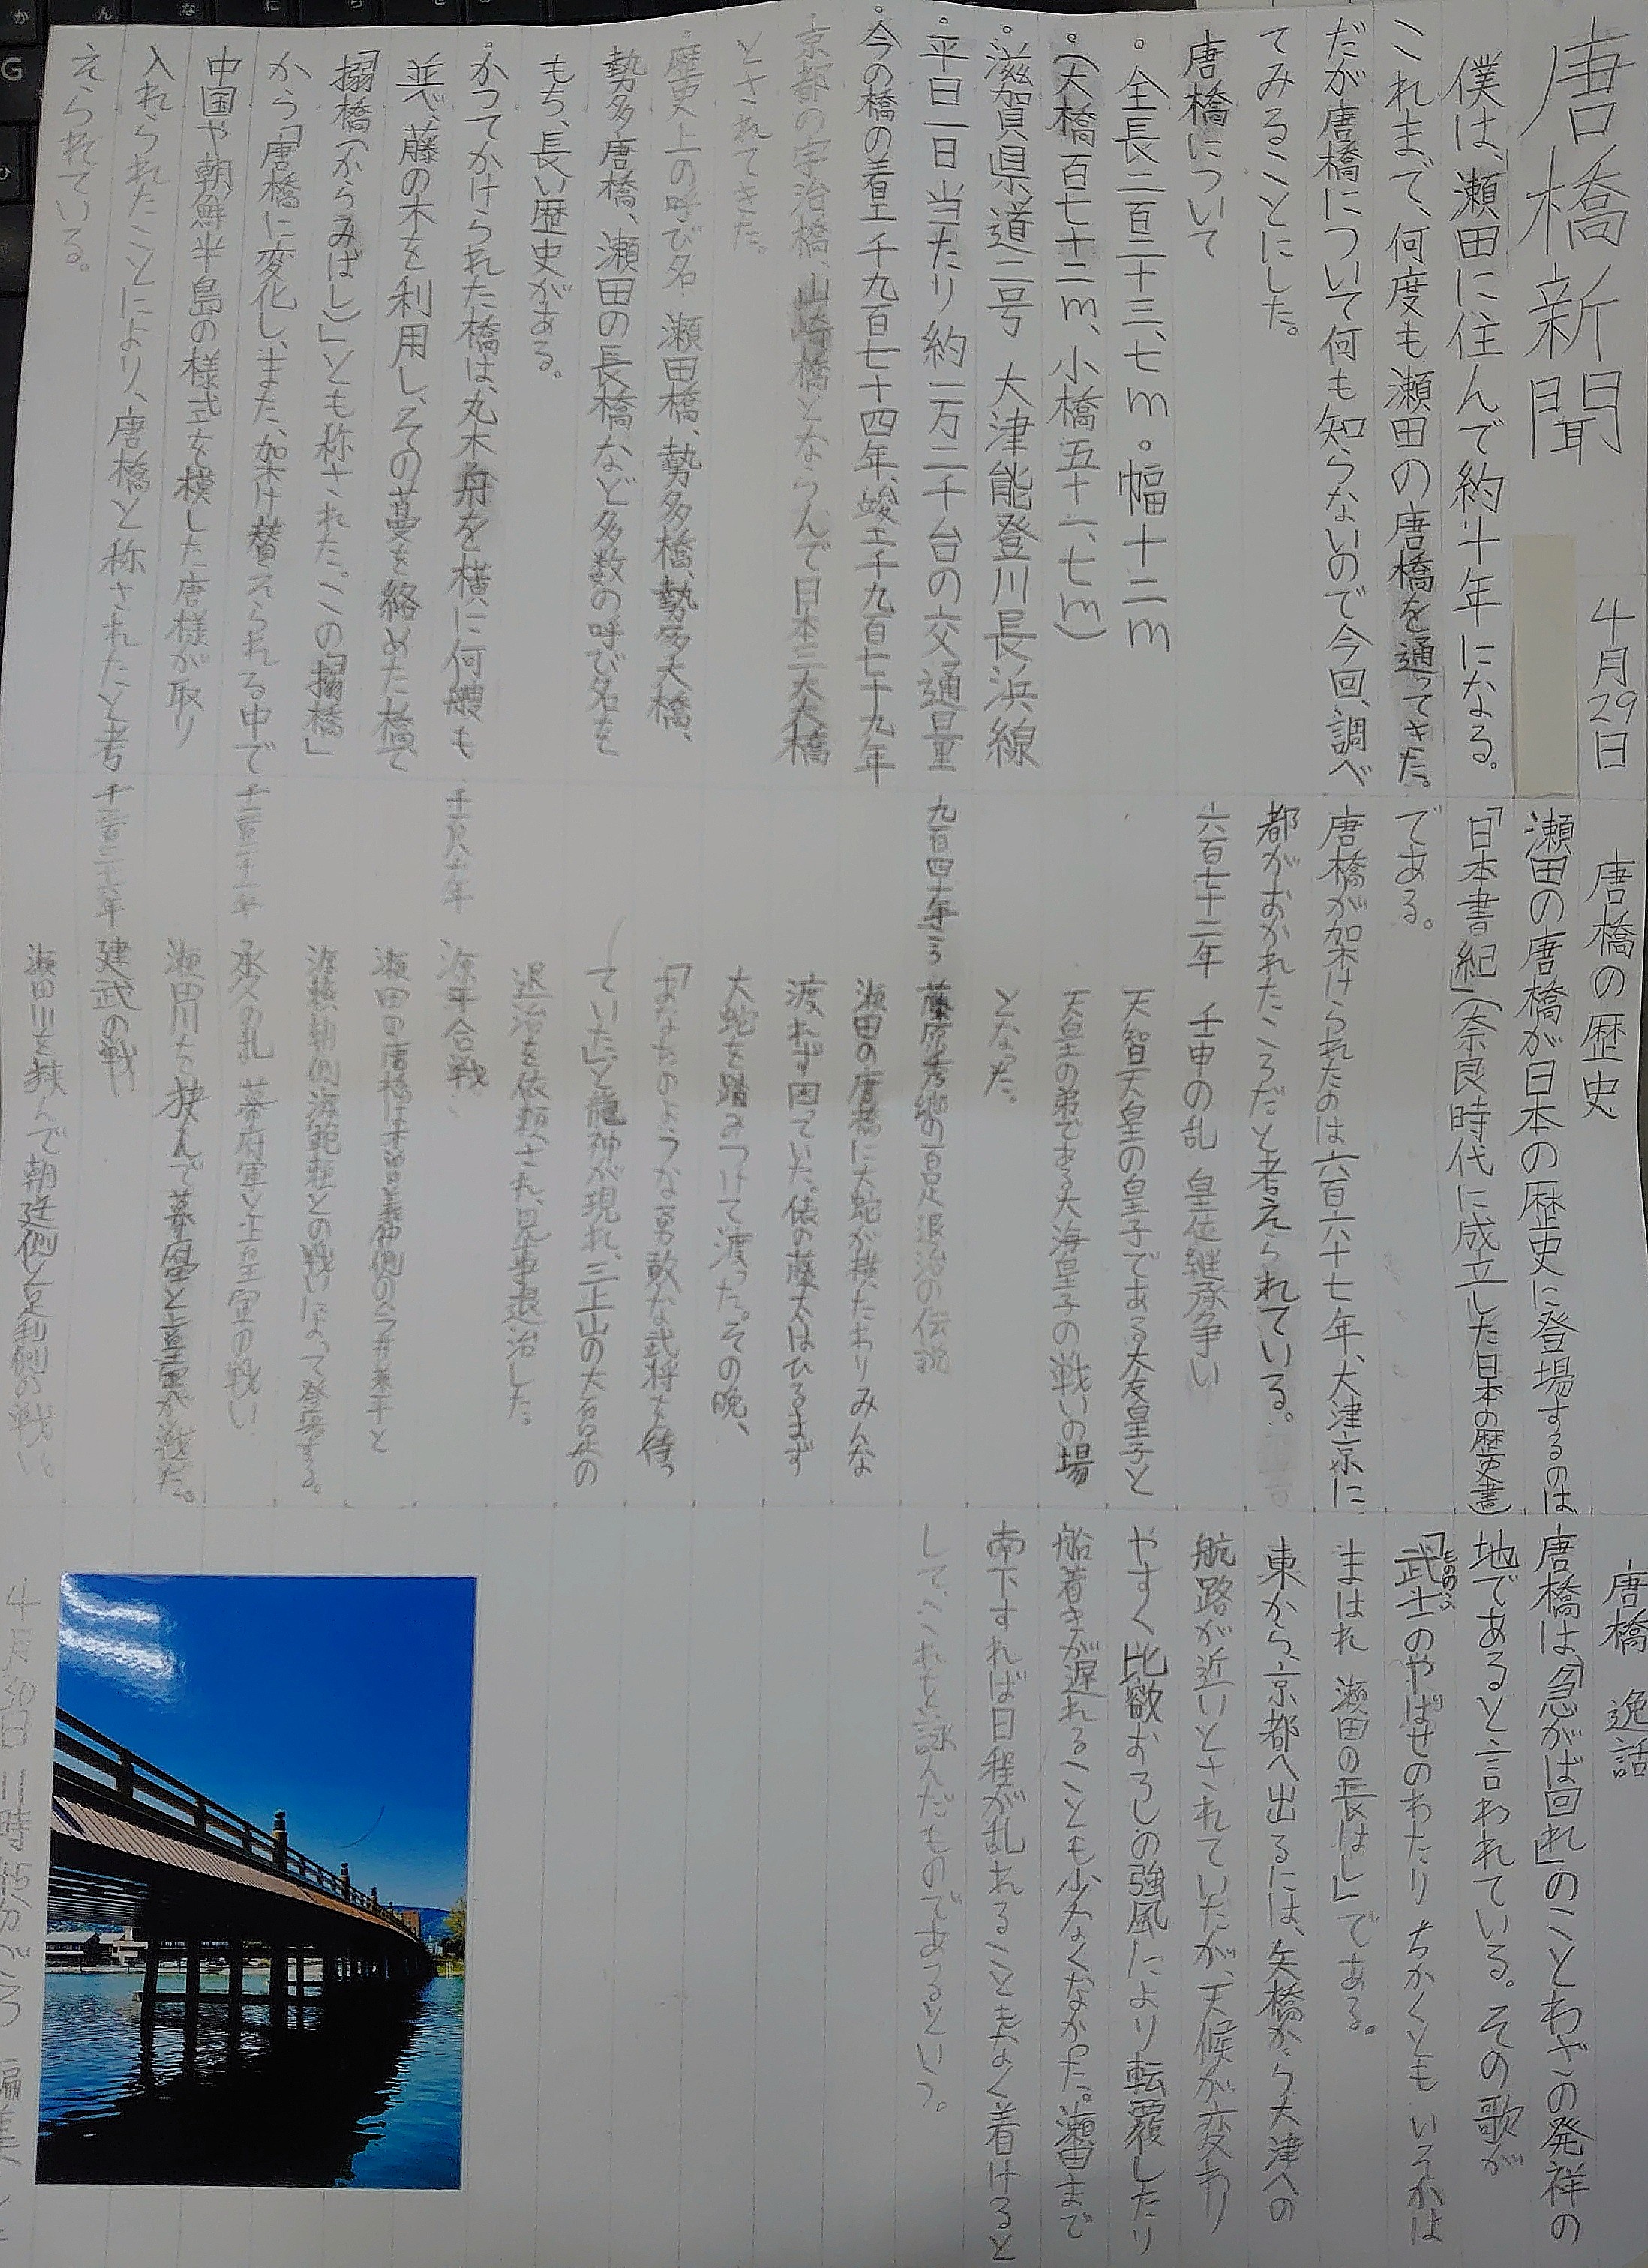 唐橋新聞
4月29日
僕は、瀬田に住んで約十年になる。
これまで、何度も瀬田の唐橋を通ってきた。
だが唐橋について何も知らないので今回、調べ
てみることにした。
唐橋について
・全長二百二十三、七m・幅十二m
・(大橋百七十二m、小橋五十一、七m)
・滋賀県道二号 大津能登川長浜線
・平日一日当たり約一万二千台の交通量
・今の橋の着工千九百七十四年、竣工千九百七十九年
京都の宇治橋、山崎橋とならんで日本三大大橋
とされてきた。
・歴史上の呼び名 瀬田橋、勢多橋、勢多大橋、
勢多唐橋、瀬田の長橋など多数の呼び名を
もち、長い歴史がある。
・かつてかけられた橋は、丸木舟を横に何艘も
並べ、藤の木を利用し、その蔓を絡めた橋で
「搦橋(からみばし)」とも称された。この「搦橋」
から「唐橋」に変化し、また、架け替えられる中で
中国や朝鮮半島の様式を模した唐様が取り
入れられたことにより、唐橋と称されたと考
えられている。
唐橋の歴史
瀬田の唐橋が日本の歴史に登場するのは
「日本書紀」(奈良時代に成立した日本の歴史書)
である。
唐橋が架けられたのは六百六十七年、大津京に
都がおかれたころだと考えられている。
六百七十二年 壬申の乱 皇位継承争い
天智天皇の皇子である大友皇子と
天皇の弟である大海皇子の戦いの場
となった。
九百四十年ころ 藤原秀郷の百足退治の伝説
瀬田の唐橋に大蛇が横たわりみんな
渡れず困っていた。俵の藤太はひるまず
大蛇を踏みつけて渡った。その晩、
「あなたのような勇敢な武将を待っ
ていた」と龍神が現れ、三上山の大百足の
退治を依頼され、見事退治した。
源平合戦
瀬田の唐橋は木曽義仲側の今井兼平と
源頼朝側源範頼との戦によって登場する。
千二百二十一年 承久の乱 幕府軍と上皇軍の戦い
瀬田川を挟んで幕府軍と上皇軍が戦った。
千三百三十六年 建武の戦い
瀬田川を挟んで朝廷側と足利側の戦い。
唐橋 逸話
唐橋は「急がば回れ」のことわざの発祥の
地であると言われている。その歌が
「武士のやばせのわたり ちかくとも いそかは
まはれ 瀬田の長はし」である。
東から、京都へ出るには、矢橋から大津への
航路が近いとされていたが、天候が変わり
やすく比叡おろしの強風により転覆したり
船着きが遅れることも少なくなかった。瀬田まで
南下すれば日程が乱れることもなく着けると
して、これを詠んだものであるという。
4月30日 11時45分ごろ